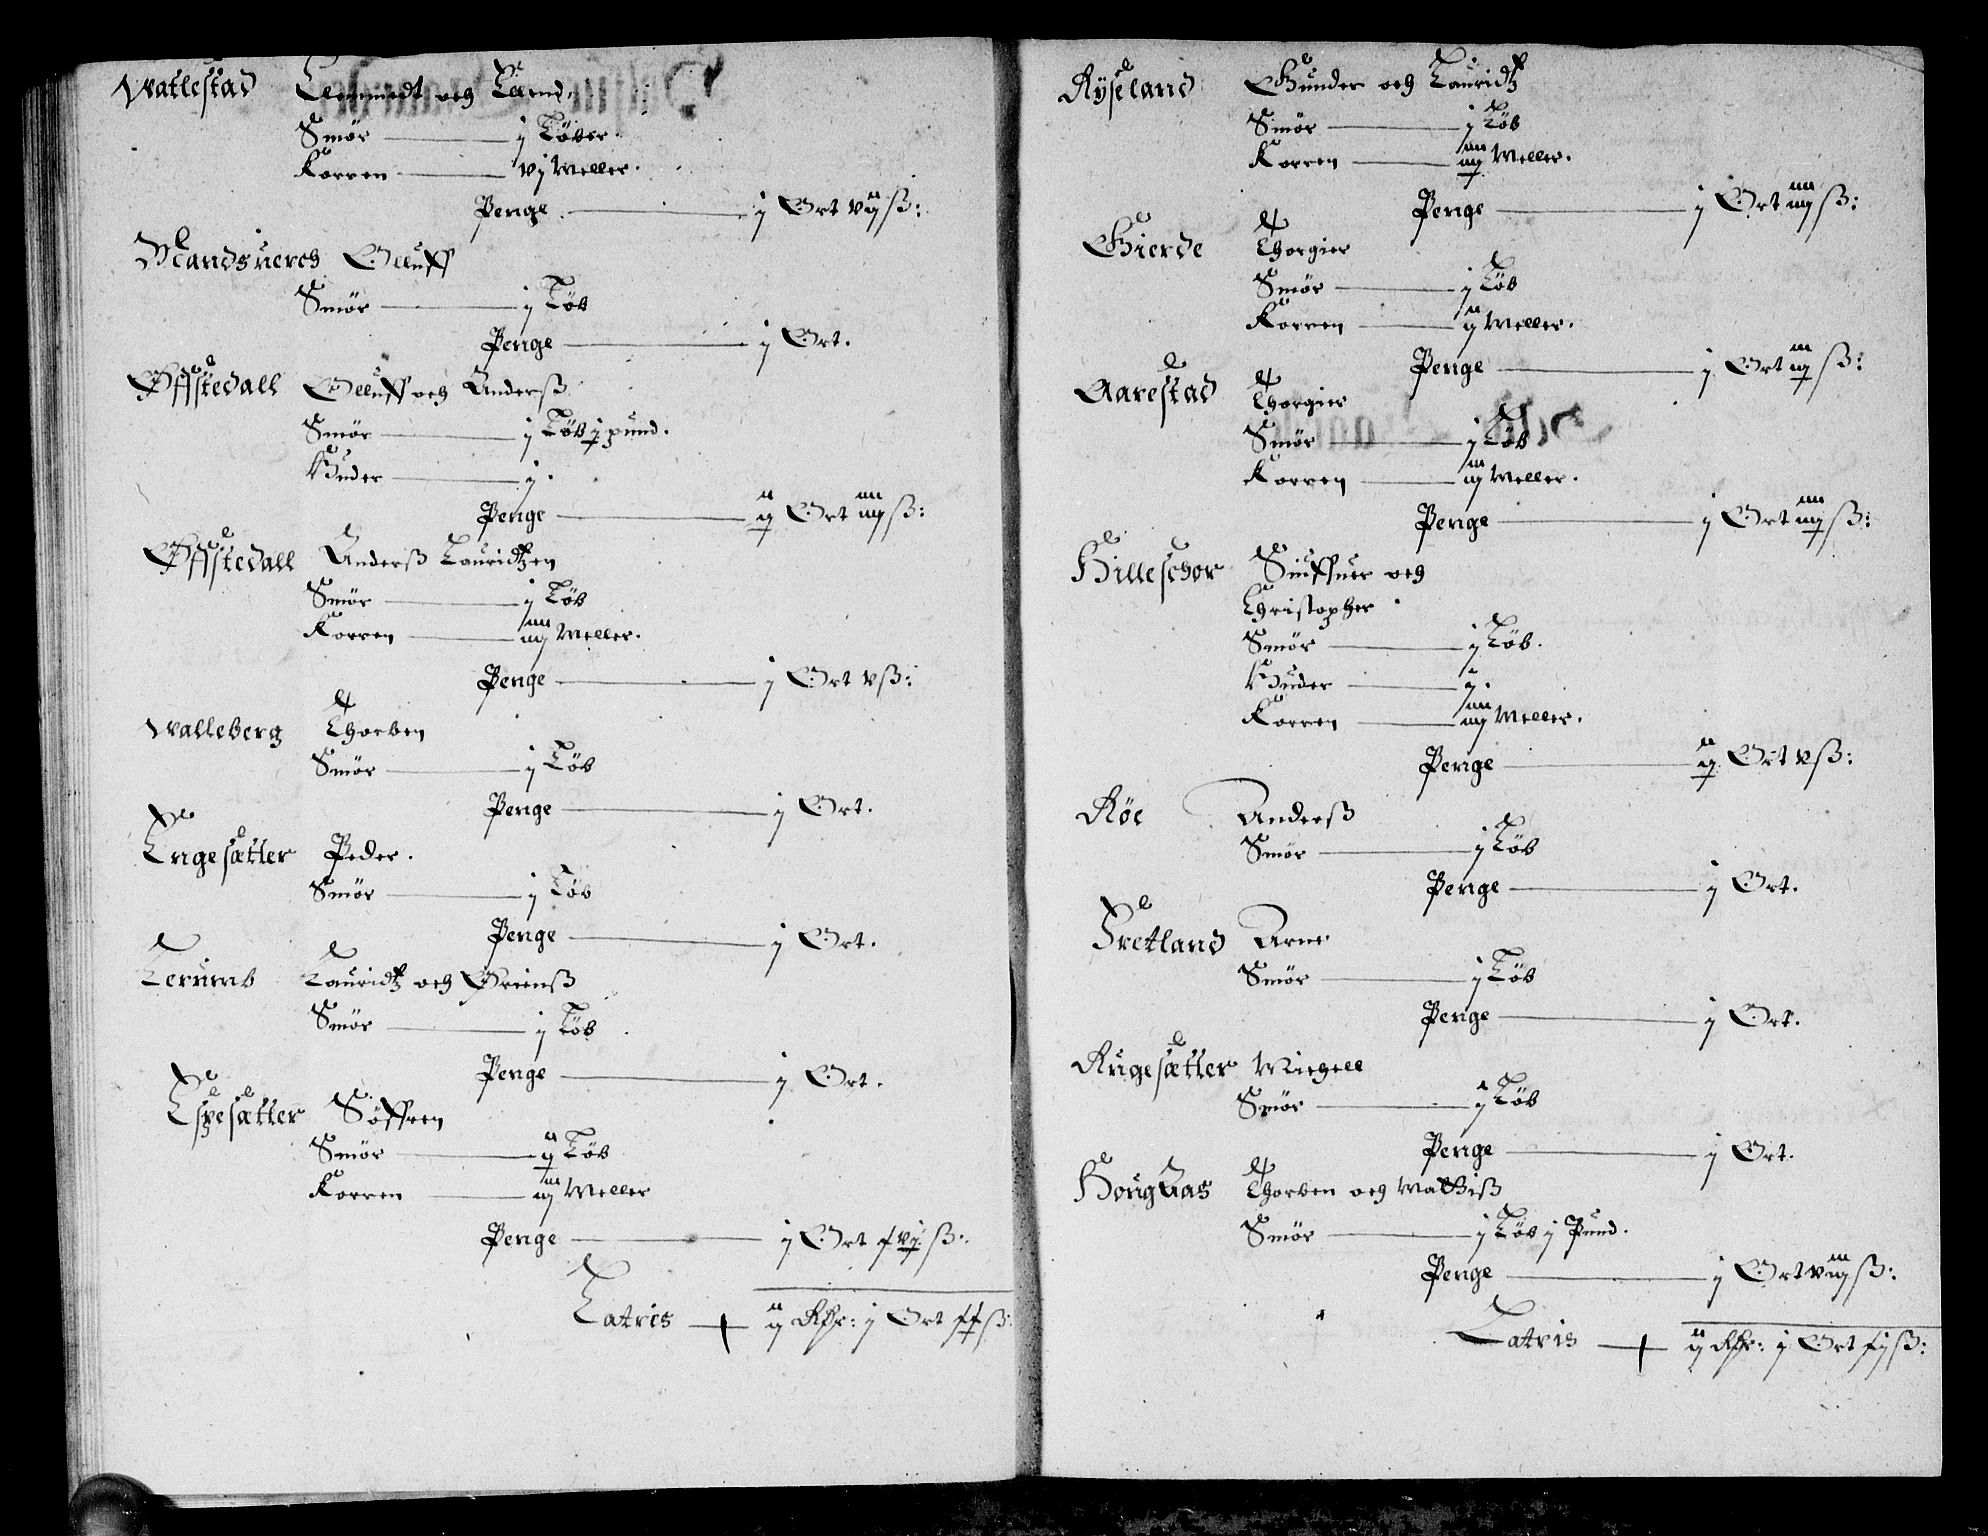 Watlestad Clemmedt och Lamd.
Smör j Löber.
Korren vj Meller.
Penge j Ort vij ß:
Mandsuerch Olluff
Smör j Löb
Penge j Ort.
Øffstedall Olluff och Anderß
Smör j Löb j pund.
Huder j.
Penge ij Ort iiij ß:
Øffstedall Anderß Lauridtzen
Smör j Löb
Korren iiij Meller.
Penge j Ort v ß:
Walleberg Thorben
Smör j Löb
Penge j Ort.
Engesætter Peder.
Smör j Löb
Penge j Ort.
Lerumb Lauridtz och Örienß
Smör j Löb
Penge j Ort.
Espesætter Söffren
Smör ij Löb
Korren iij Meller
Penge j Ort xvj ß:
Latris ij Rßr: j Ort xx ß:
Ryseland Gunder och Lauridtz
Smör j Löb
Korren iiij Meller.
Penge j Ort iiij ß:
Gierde Thorgier
Smör j Löb
Korren ij Meller.
Penge j Ort iij ß:
Aarestad Thorgier
Smör j Löb
Korren iij Meller.
Penge j Ort iiij ß:
Hilleschor Siuffuer och
Christopher
Smör j Löb.
Huder j.
Korren iiij Meller.
Penge ij Ort v ß:
Röe Anderß
Smör j Löb
Penge j Ort.
Fretland Arne
Smör j Löb
Penge j Ort.
Rugesætter Michell
Smör j Löb
Penge j Ort.
Houglaas Thorben och Mathiß
Smör j Löb j Pund.
Penge j Ort viij ß:
Latris ij Rßr: j Ort xj ß: